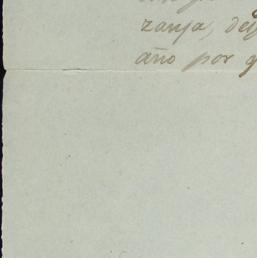 zanja, de
año por q